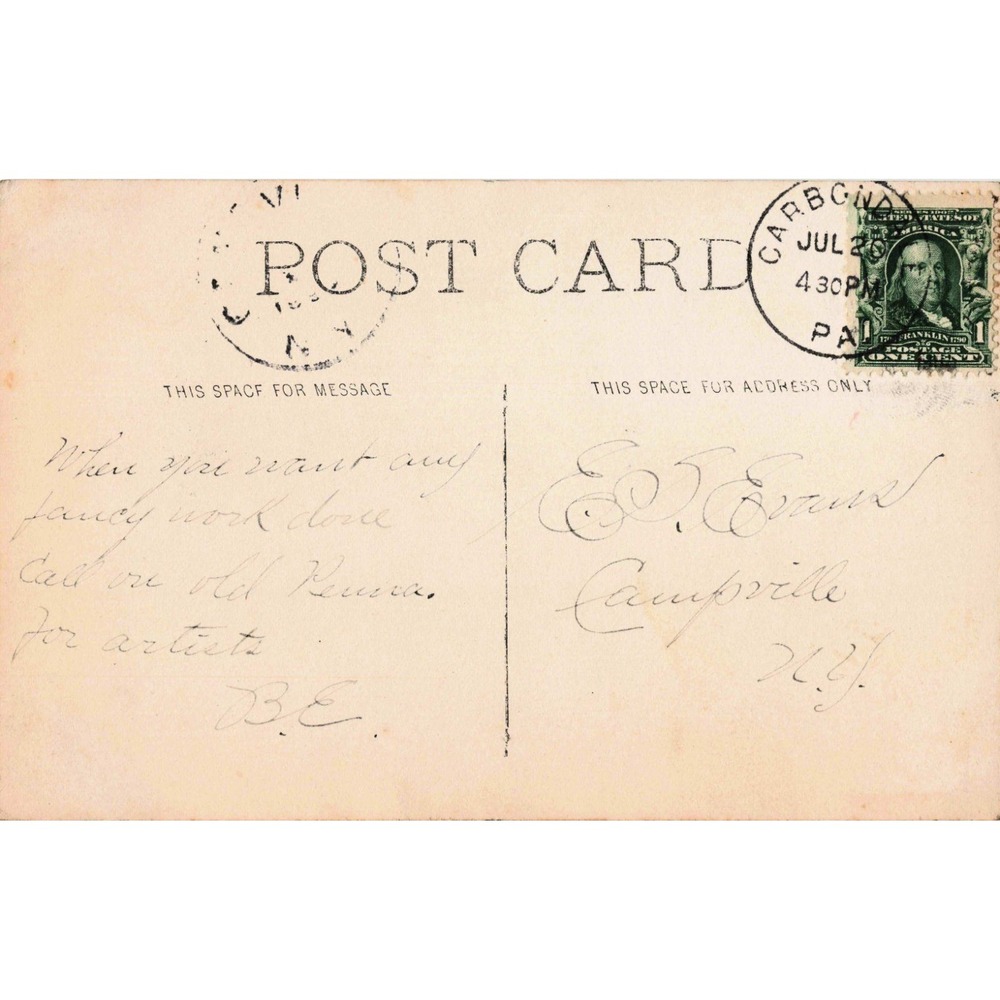 POST CARD
CARBOND
JUL 26
4 30 PM
PA
SERIES 1902
UNITED STATES OF
AMERICA
1 1
FRANKLIN 1790
POSTAGE
ONE CENT
VI
N Y
THIS SPACE FOR MESSAGE
THIS SPACE FOR ADDRESS ONLY
When you want any
fancy work done
Call on old Penna.
for artists
B.E.
E.S. Evans
Campville
N.Y.